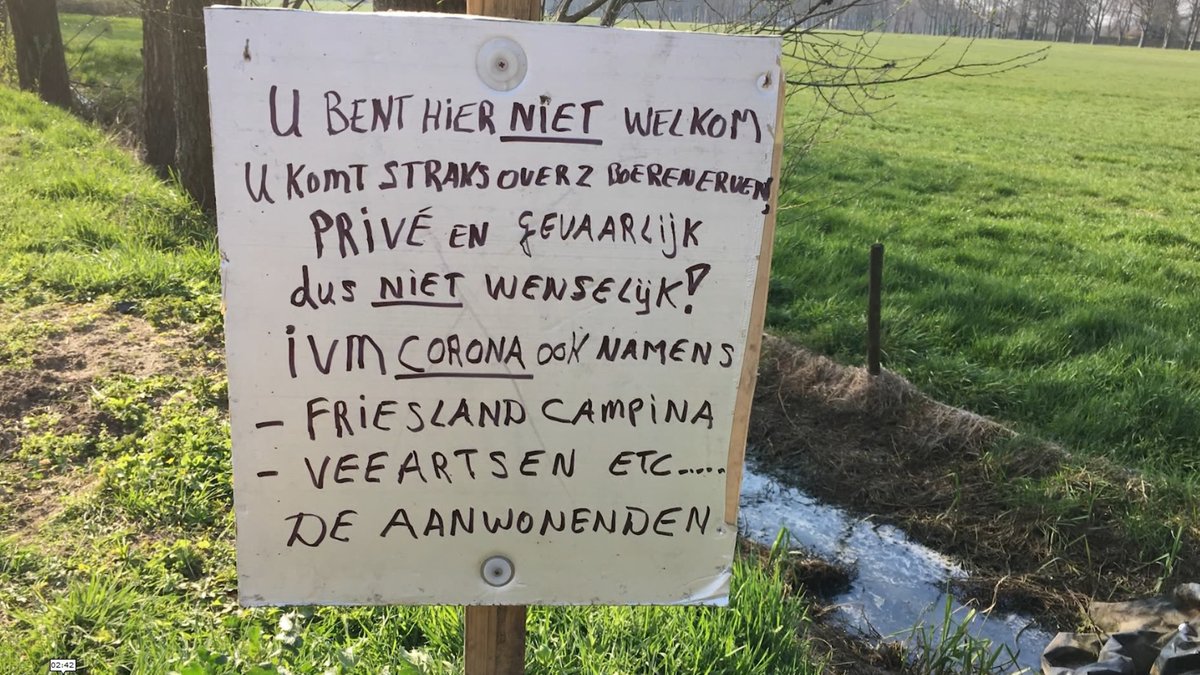 U BENT HIER NIET WELKOM
U KOMT STRAKS OVER 2 BOERENERVEN,
PRIVÉ EN GEVAARLIJK
dus NIET WENSELIJK!
IVM CORONA OOK NAMENS
- FRIESLAND CAMPINA
- VEEARTSEN ETC.....
DE AANWONENDEN
02:42